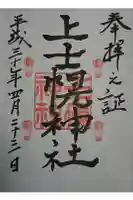 奉拝之証
上士幌神社
平成三十年四月二十三日